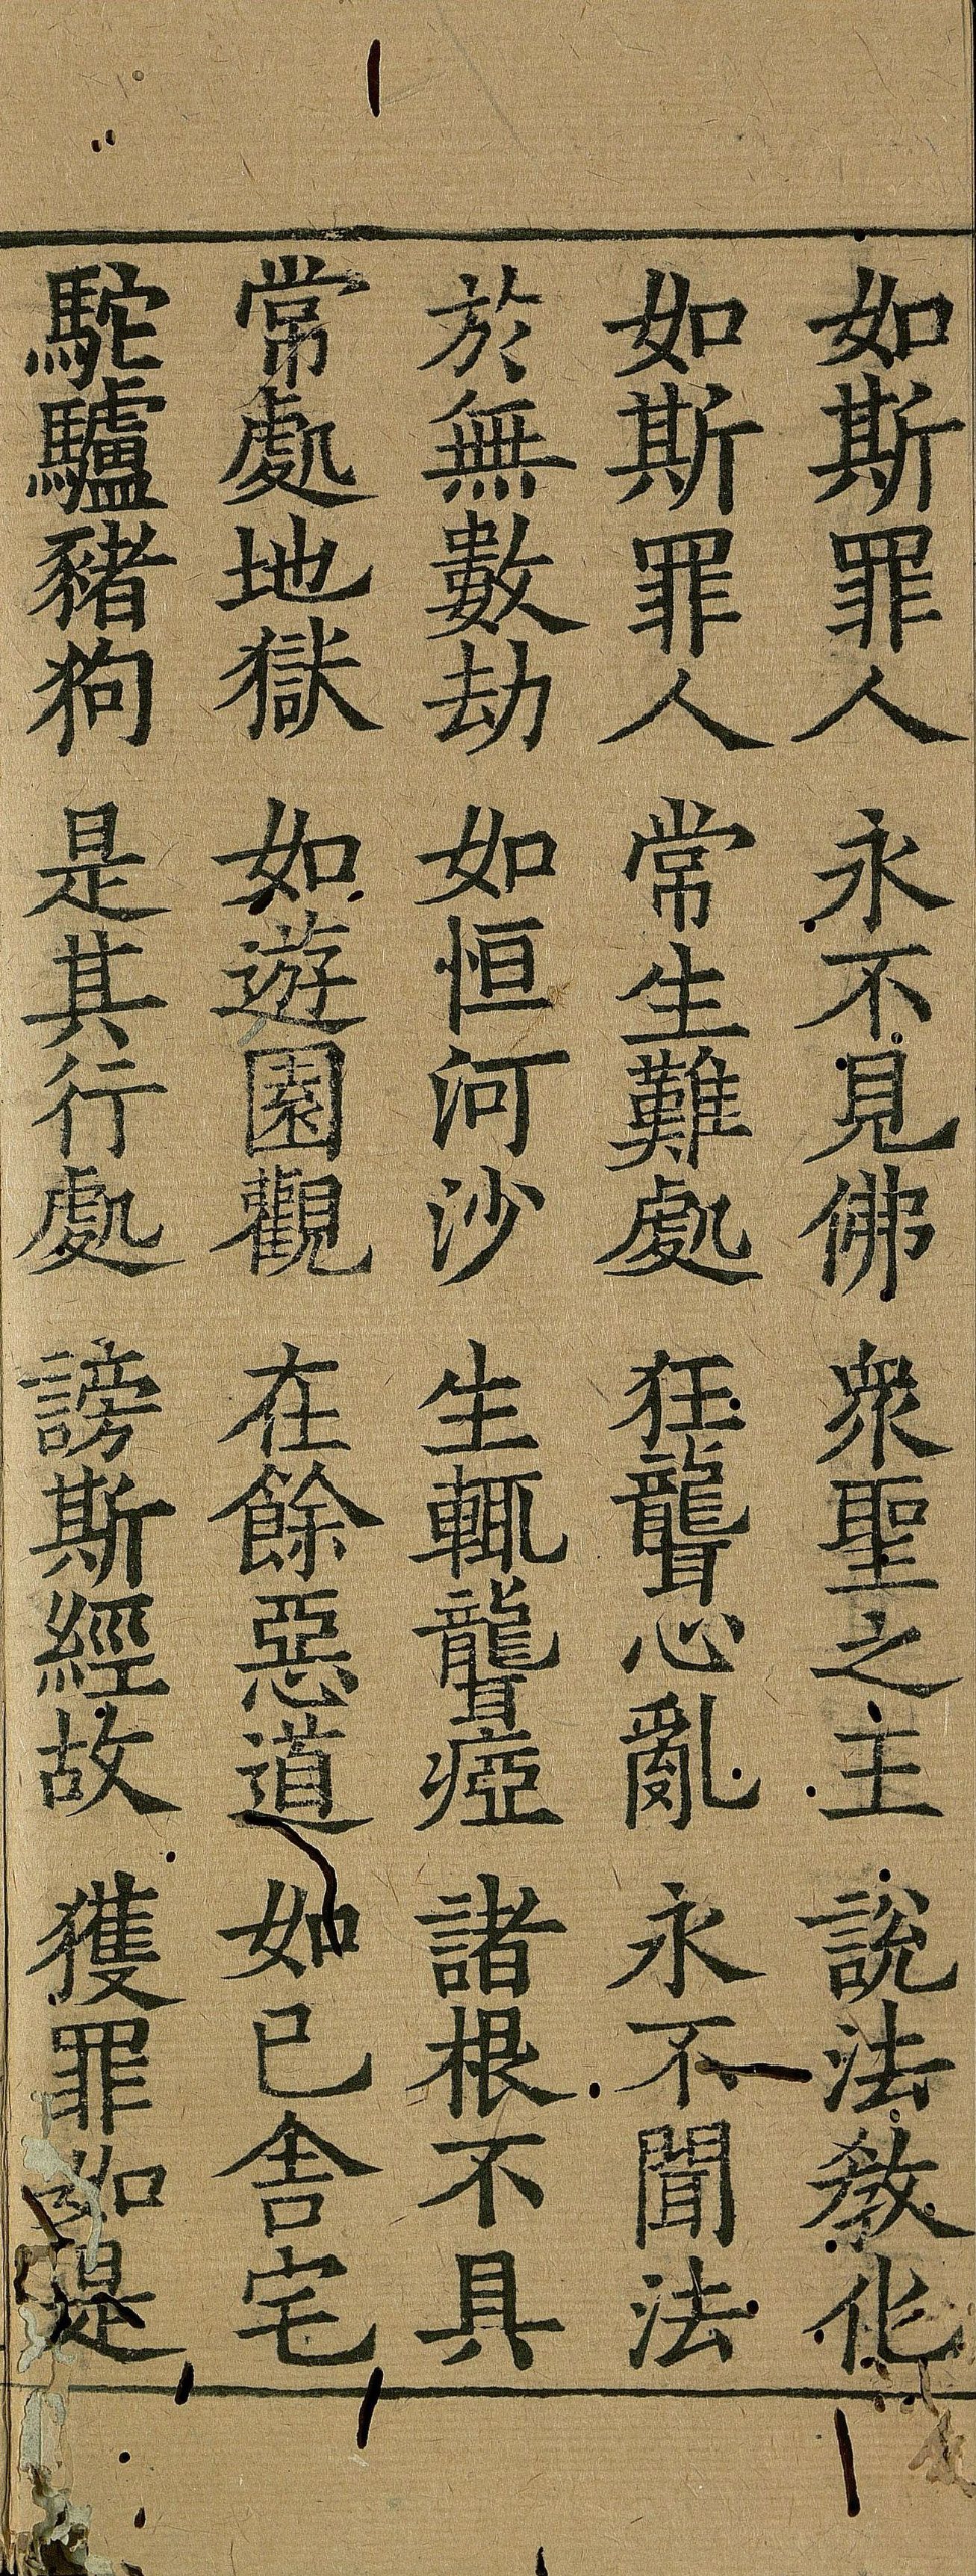 如斯罪人 永不見佛 衆聖之主 說法教化
如斯罪人 常生難處 狂聾心亂 永不聞法
於無數劫 如恒河沙 生輒聾瘂 諸根不具
常處地獄 如遊園觀 在餘惡道 如已舍宅
駝驢豬狗 是其行處 謗斯經故 獲罪如是